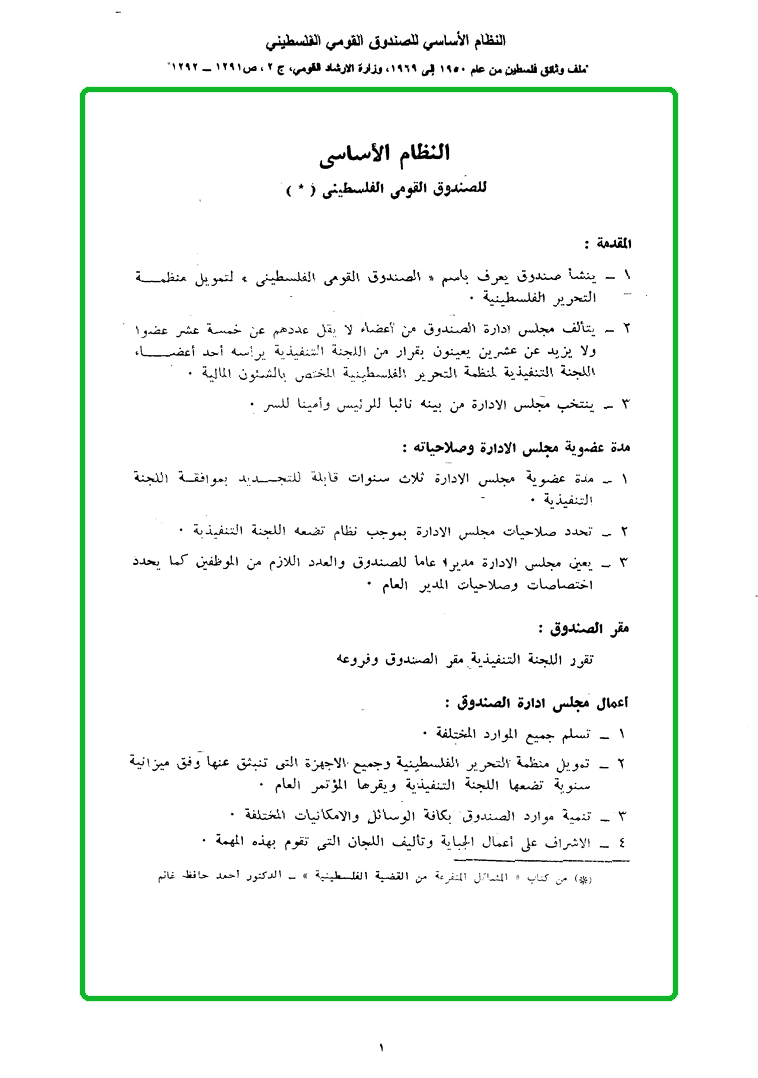 النظام الأساسي للصندوق القومي الفلسطيني
"ملف وثائق فلسطين من عام ١٩٥٠ إلى ١٩٦٩، وزارة الارشاد القومي، ج ٢، ص١٢٩١ – ١٢٩٢"
النظام الأساسى
للصندوق القومى الفلسطينى ( * )
المقدمة :
١ – ينشأ صندوق يعرف باسم « الصندوق القومى الفلسطينى » لتمويل منظمة
التحرير الفلسطينية ٠
٢ – يتألف مجلس ادارة الصندوق من أعضاء لا يقل عددهم عن خمسة عشر عضوا
ولا يزيد عن عشرين يعينون بقرار من اللجنة التنفيذية يرأسه أحد أعضاء،
اللجنة التنفيذية لمنظمة التحرير الفلسطينية المختص بالشئون المالية ٠
٣ – ينتخب مجلس الادارة من بينه نائبا للرئيس وأمينا للسر ٠
مدة عضوية مجلس الادارة وصلاحياته :
١ – مدة عضوية مجلس الادارة ثلاث سنوات قابلة للتجديد بموافقة اللجنة
التنفيذية ٠
٢ – تحدد صلاحيات مجلس الادارة بموجب نظام تضعه اللجنة التنفيذية ٠
٣ – يعين مجلس الادارة مديرا عاما للصندوق والعدد اللازم من الموظفين كما يحدد
اختصاصات وصلاحيات المدير العام ٠
مقر الصندوق :
تقرر اللجنة التنفيذية مقر الصندوق وفروعه
أعمال مجلس ادارة الصندوق :
١ – تسلم جميع الموارد المختلفة ٠
٢ – تمويل منظمة التحرير الفلسطينية وجميع الاجهزة التى تنبثق عنها وفق ميزانية
سنوية تضعها اللجنة التنفيذية ويقرها المؤتمر العام ٠
٣ – تنمية موارد الصندوق بكافة الوسائل والامكانيات المختلفة ٠
٤ – الاشراف على أعمال الجباية وتأليف اللجان التى تقوم بهذه المهمة ٠
(*) من كتاب « المشاكل المتفرعة من القضية الفلسطينية » – الدكتور أحمد حافظ غانم
١